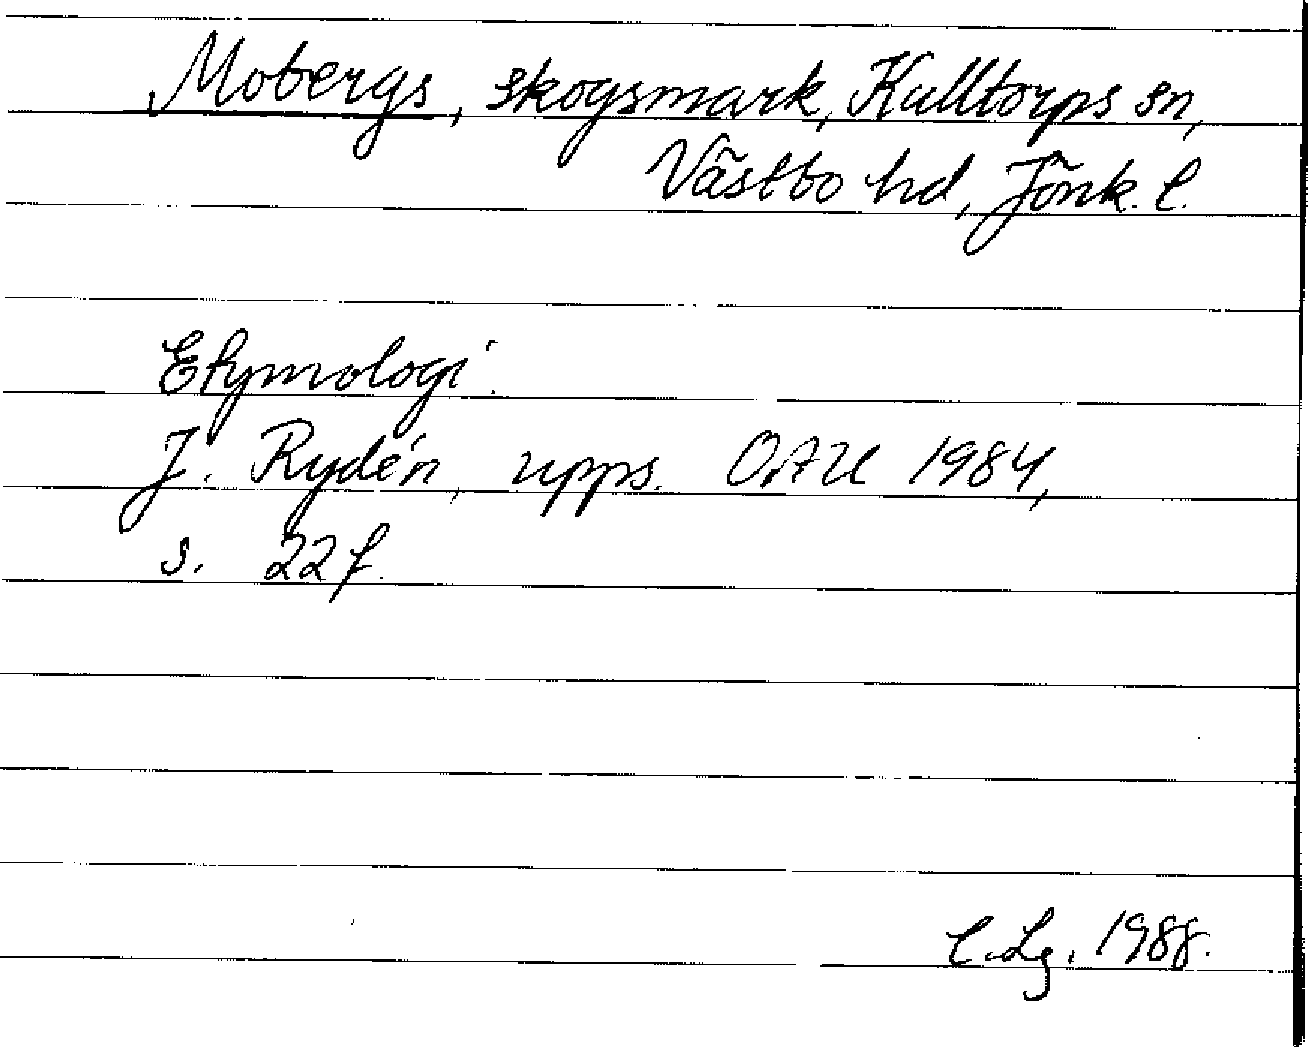 Mobergs, skogsmark, Kulltorps sn,
Västbo hd, Jönk. l.
Etymologi.
J. Rydén, upps. OAU 1984,
s. 22 f.
C. Lg. 1988.